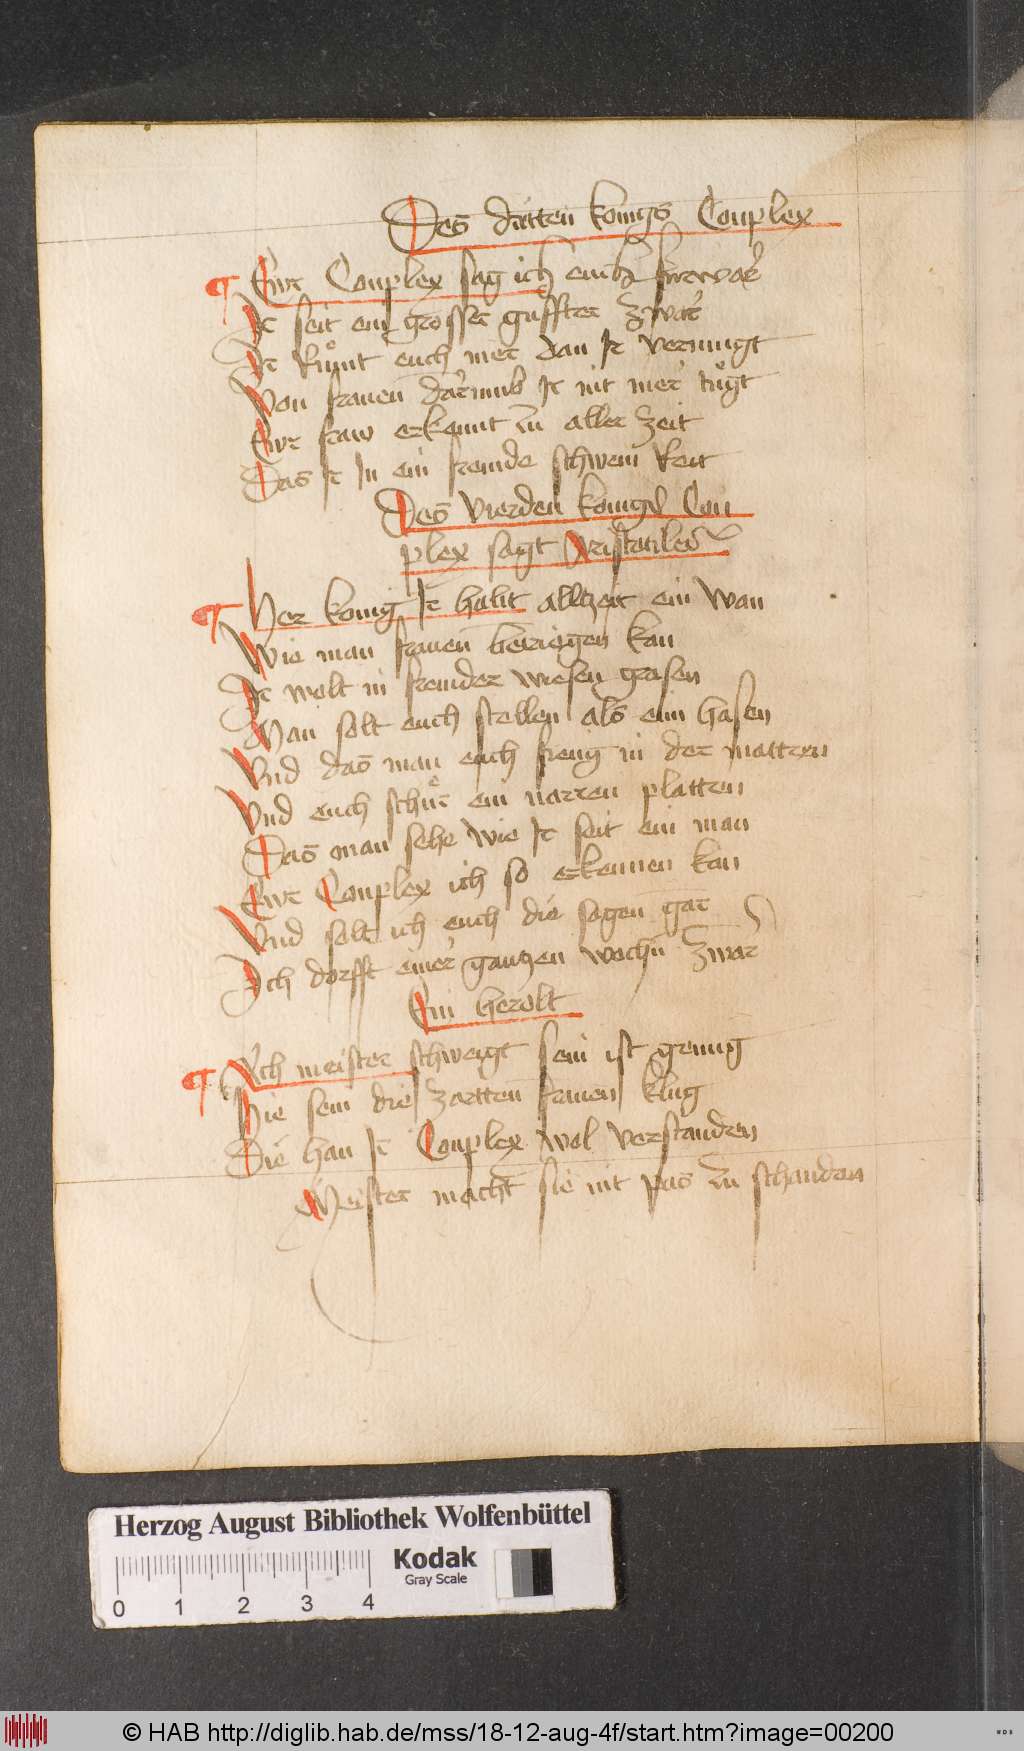 Des dritten konigs Conplex
¶ Ewr Conplex sag ich euch furwar
Ir seit ein grosser guffter zwar
Ir Růmt euch mer dan Ir vermugt
Von frauen darumb Ir nit mer tůgt
Ewr fraw erkennt zu aller zeit
Das Ir In ein fremde schwem Reit
Des vierden konigs Con
plex sagt Aristotiles
¶ Her konig Ir habt alltzeit ein wan
Wie man frauen betriegen kan
Ir wolt in fremder wiesen grasen
Man solt euch stellen als einn hasen
Vnd das man euch freng in der mattzen
Vnd euch schůr ein narren platten
Das man sehe wie Ir seit ein man
Ewr Conplex ich so erkennen kan
Vnd solt ich euch die sagen gar
Ich dorfft einer gantzen wochen zwar
Ein herolt
¶ Ach meister schweigt sein ist genug
Hie sein die zartten frauen klug
Die han Ir Conplex wol verstanden
Meister macht sie nit pas zu schanden
Herzog August Bibliothek Wolfenbüttel
Kodak
Gray Scale
0 1 2 3 4
© HAB http://diglib.hab.de/mss/18-12-aug-4f/start.htm?image=00200
WDB